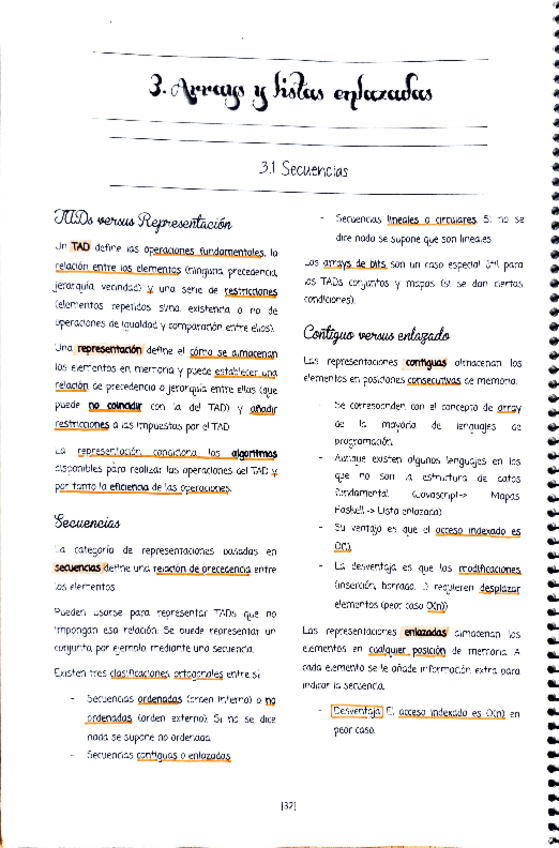 3. Arrays y listas enlazadas
3.1 Secuencias
TADs versus Representación
Un TAD define las operaciones fundamentales, la
relación entre los elementos (ninguna, precedencia,
jerarquía, vecindad) y una serie de restricciones
(elementos repetidos existencia o no de
operaciones de igualdad y comparación entre ellos).
Una representación define el cómo se almacenan
los elementos en memoria y puede establecer una
relación de precedencia o jerarquía entre ellas (que
puede no coincidir con la del TAD) y añadir
restricciones a las impuestas por el TAD
La representación condiciona los algoritmos
disponibles para realizar las operaciones del TAD y
por tanto la eficiencia de las operaciones.
Secuencias
La categoría de representaciones basadas en
secuencias define una relación de precedencia entre
los elementos
Pueden usarse para representar TADs que no
impongan esa relación. Se puede representar un
conjunto, por ejemplo, mediante una secuencia.
Existen tres clasificaciones ortogonales entre sí
- Secuencias ordenadas (orden interno) o no
ordenadas (orden externo). Si no se dice
nada se supone no ordenada
- Secuencias contiguas o enlazadas
- Secuencias lineales o circulares. Si no se
dice nada se supone que son lineales.
Los arrays de bits son un caso especial útil para
los TADs conjuntos y mapas (si se dan ciertas
condiciones).
Contiguo versus enlazado
Las representaciones contiguas almacenan los
elementos en posiciones consecutivas de memoria.
- Se corresponden con el concepto de array
de la mayoría de lenguajes de
programación
- Aunque existen algunos lenguajes en los
que no son la estructura de datos
fundamental (Javascript-> Mapas
Haskell -> Lista enlazada)
- Su ventaja es que el acceso indexado es
O(1)
- La desventaja es que las modificaciones
(inserción, borrado...) requieren desplazar
elementos (peor caso O(n))
Las representaciones enlazadas almacenan los
elementos en cualquier posición de memoria. A
cada elemento se le añade información extra para
indicar la secuencia.
- Desventaja El acceso indexado es O(n) en
peor caso.
[32]